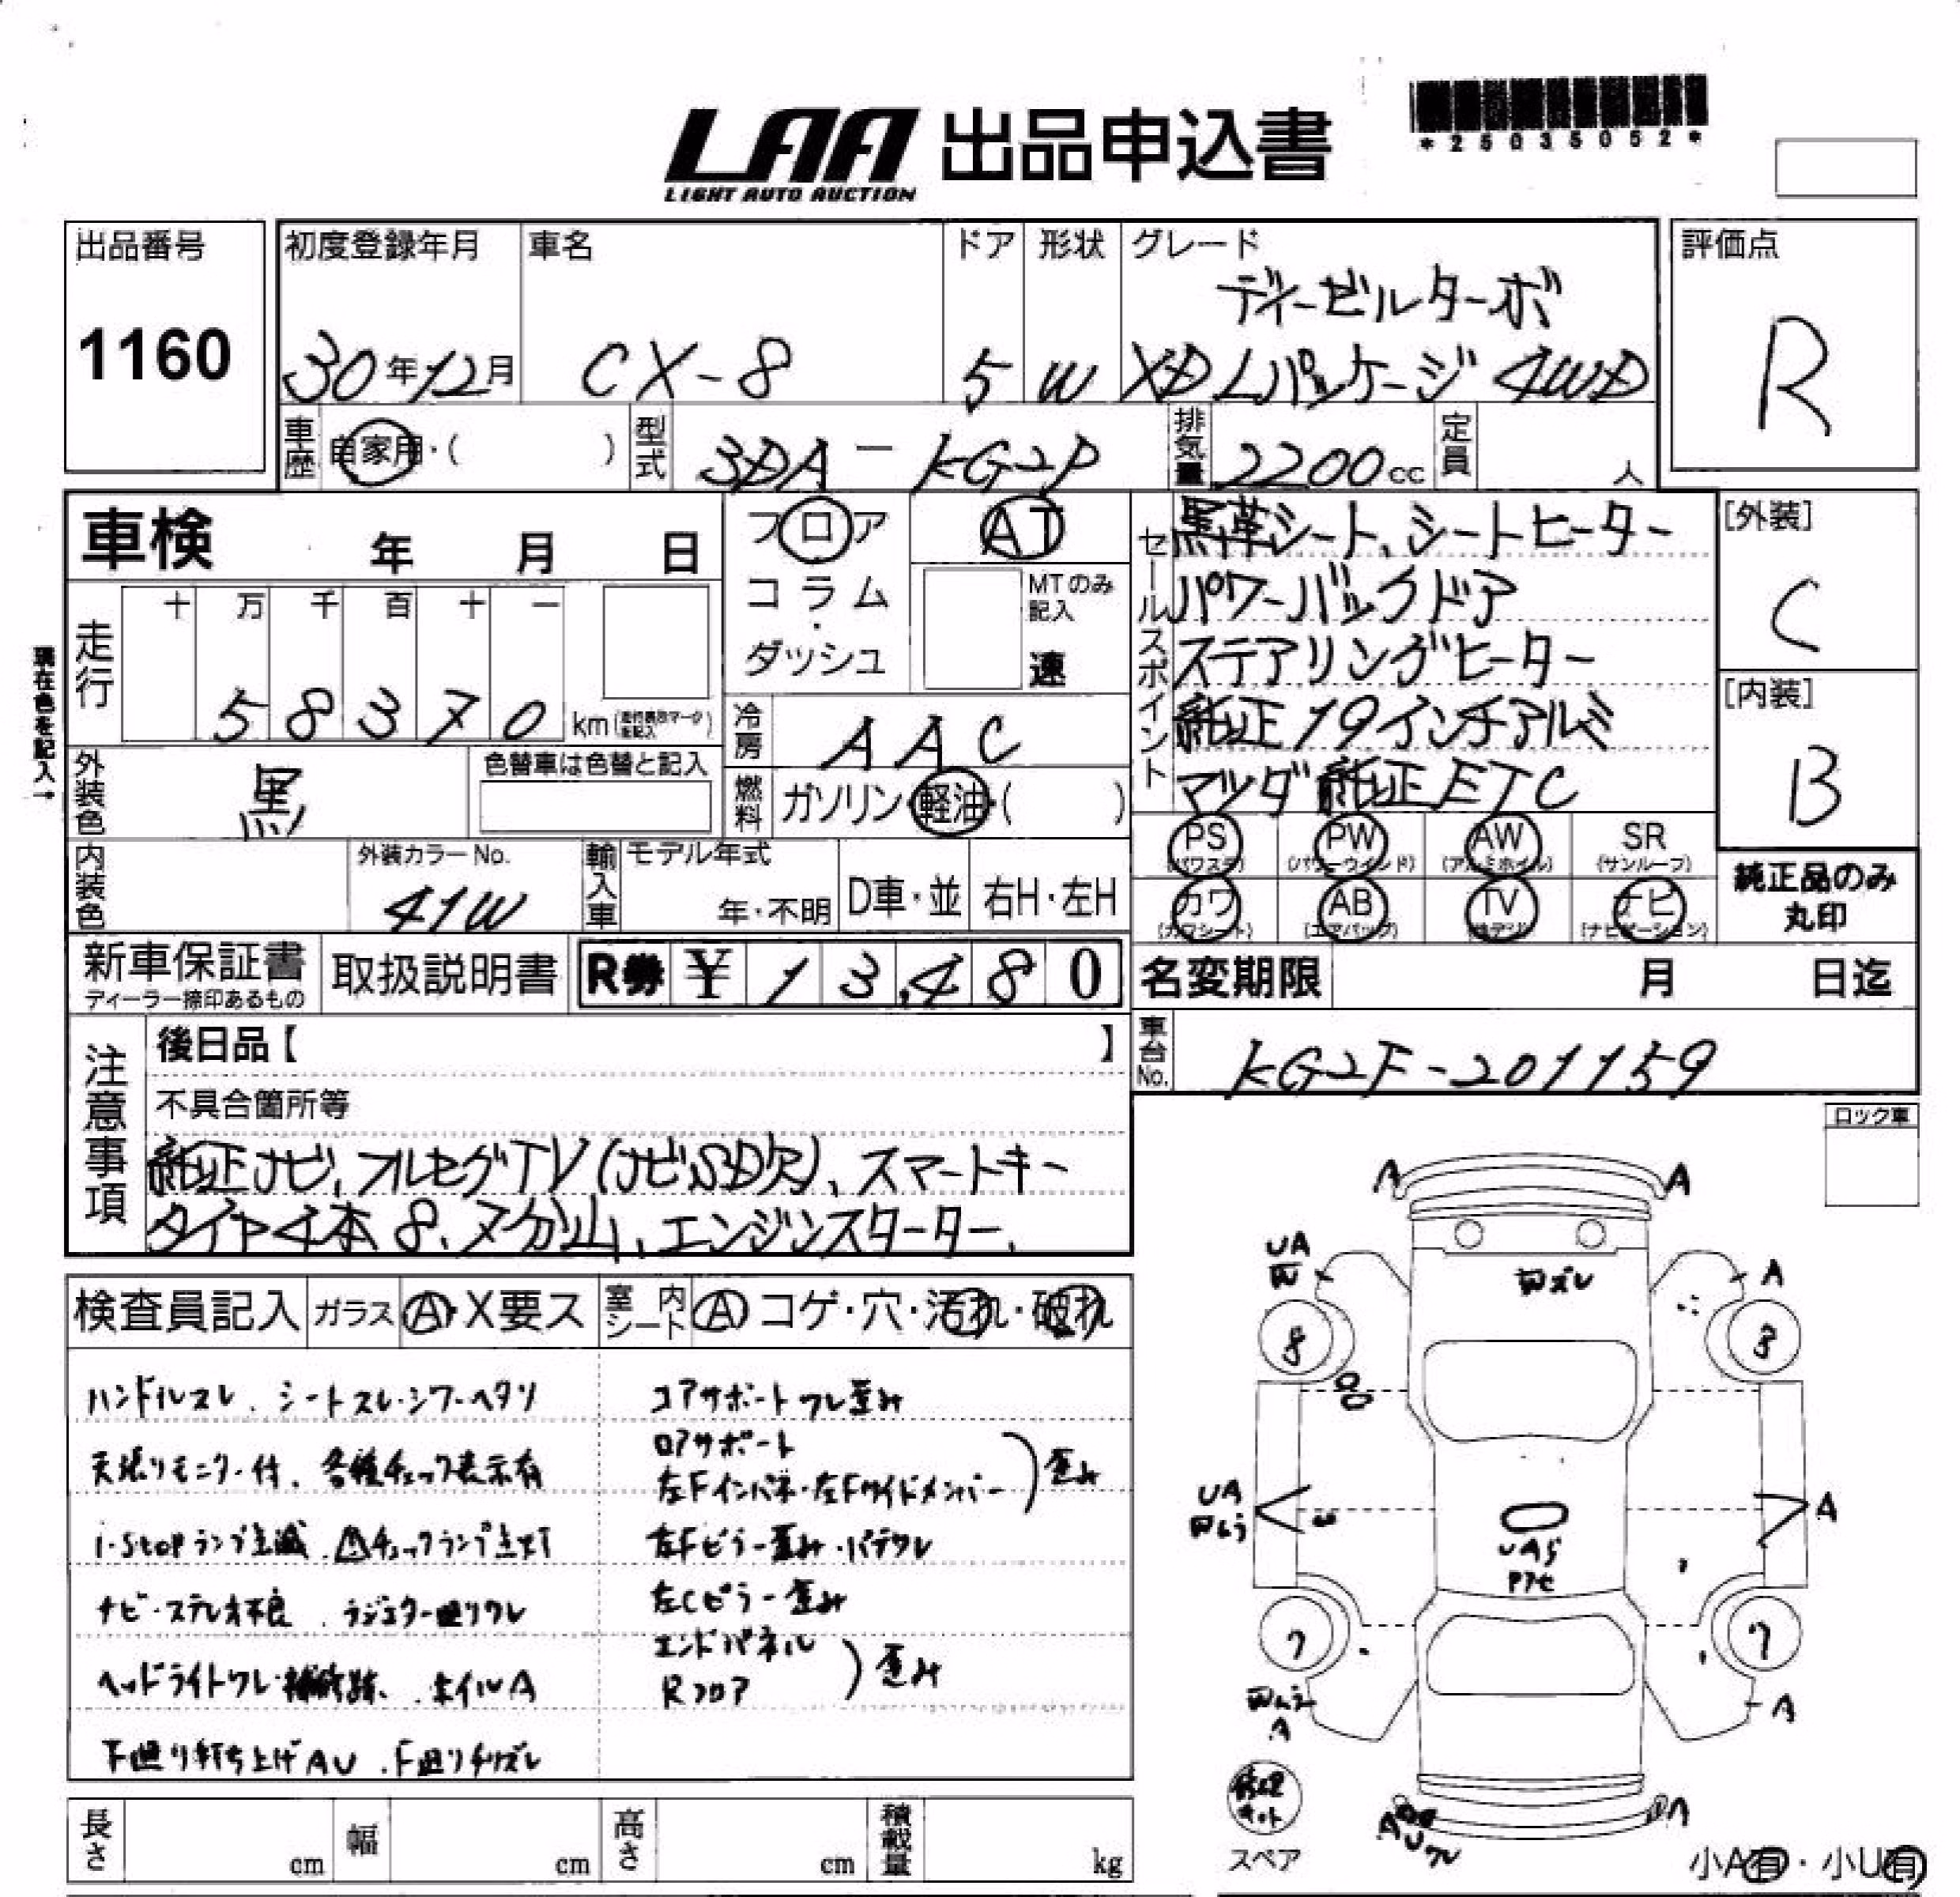 LAA 出品申込書
LIGHT AUTO AUCTION
*25035052*
出品番号
1160
初度登録年月 車名 ドア 形状 グレード
ディーゼルターボ
30年12月 CX-8 5 W XD Lパッケージ 4WD
評価点
R
車歴 自家用・( ) 型式 3DA-KG2P 排気量 2200cc 定員 人
車検 年 月 日
フロア
AT
コラム
・
ダッシュ
MTのみ
記入
速
走行 十 万 千 百 十 一
58370 km
現在色を記入→
冷房 AAC
外装色 黒
色替車は色替と記入
燃料 ガソリン・軽油・( )
内装色
外装カラーNo.
41W
輸入車 モデル年式
年・不明 D車・並 右H・左H
セールスポイント
黒革シート、シートヒーター
パワーバックドア
ステアリングヒーター
純正19インチアルミ
マツダ純正ETC
[外装]
C
[内装]
B
PS PW AW SR
(パワステ) (パワーウインド) (アルミホイル) (サンルーフ)
カワ AB TV ナビ
(カワシート) (エアバッグ) (ナビゲーション)
純正品のみ
丸印
新車保証書
ディーラー捺印あるもの
取扱説明書
R券 ¥13,480
名変期限 月 日迄
車台No. KG2P-201159
注意事項
後日品【 】
不具合箇所等
純正ナビ、フルセグTV(ナビSD欠)、スマートキー
タイヤ4本8.7分山、エンジンスターター、
ロック車
検査員記入 ガラス A・X要ス 室内シート A コゲ・穴・汚れ・破れ
ハンドルスレ、シートスレ・シワ・ヘタリ
天張りモニター付、各種チェック表示有
i-stopランプ点滅 ⚠チェックランプ点灯
ナビ・ステレオ不良、ラジエター廻りワレ
ヘッドライトワレ・補修跡、ホイルA
下廻り打ち上げAU、F廻りチリズレ
コアサポートワレ歪み
ロアサポート
左Fインパネ・左Fサイドメンバー
歪み
左Fピラー歪み・パテワレ
左Cピラー歪み
エンドパネル
Rフロア
歪み
A A
UA
凹
A
凹ズレ
8 8
UA
凹ムラ
A
UAS
7 7
凹ムラ
A
A
修理
キット
スペア
A
小A有・小U有
長さ cm 幅 cm 高さ cm 積載量 kg